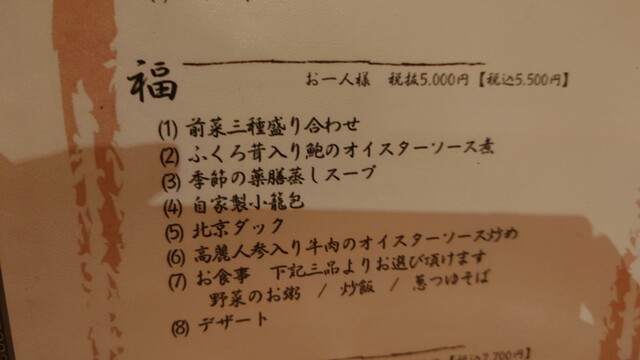 福
お一人様 税抜5.000円【税込5.500円】
(1) 前菜三種盛り合わせ
(2) ふくろ茸入り鮑のオイスターソース煮
(3) 季節の薬膳蒸しスープ
(4) 自家製小龍包
(5) 北京ダック
(6) 高麗人参入り牛肉のオイスターソース炒め
(7) お食事 下記三品よりお選び頂けます
野菜のお粥 / 炒飯 / 葱つゆそば
(8) デザート